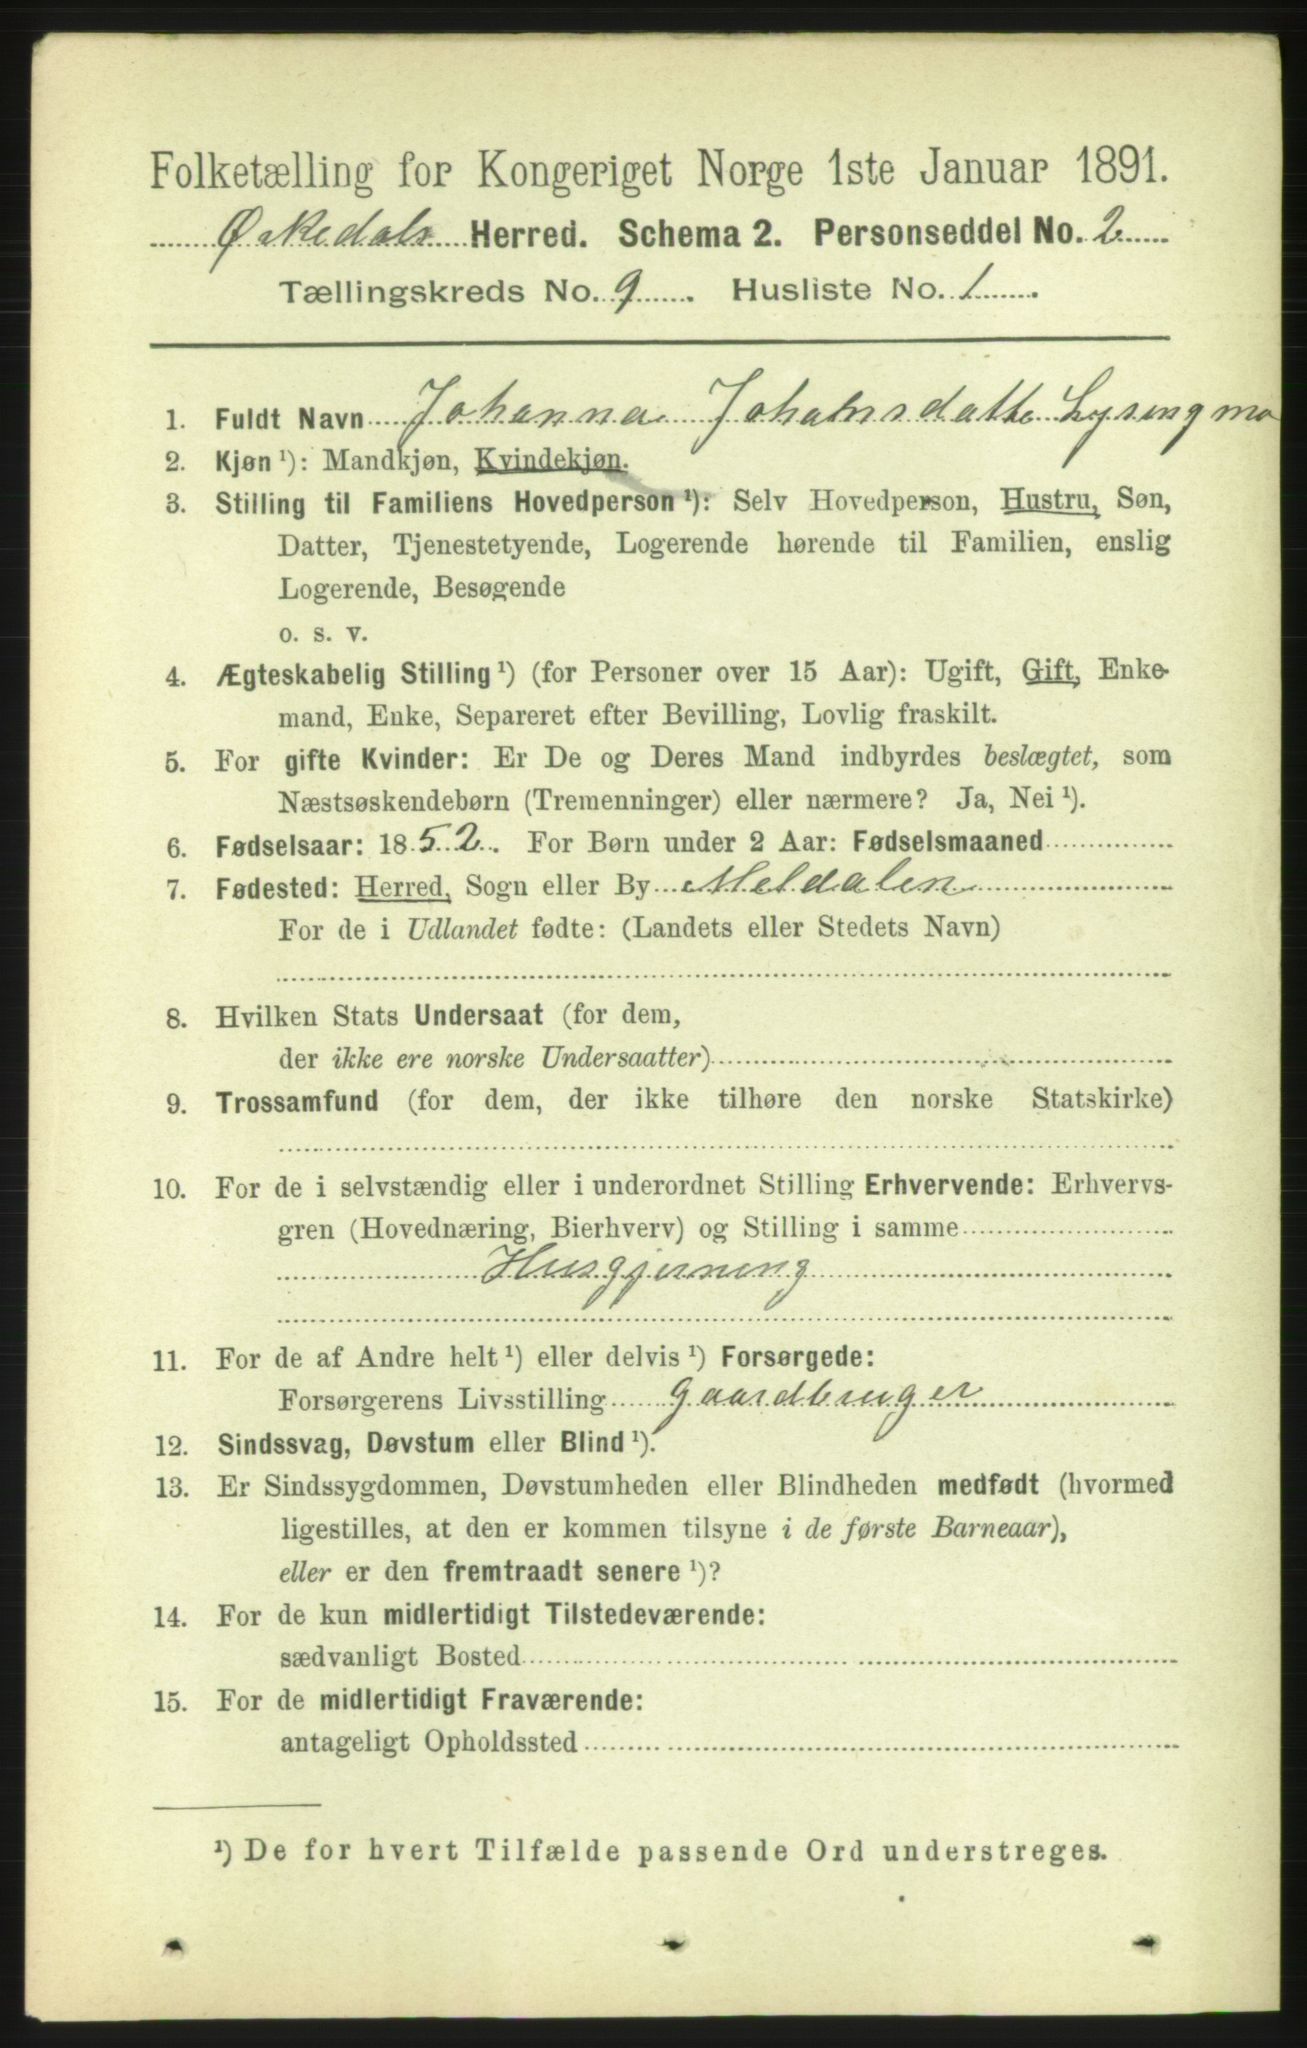 Folketælling for Kongeriget Norge 1ste Januar 1891.
Ørkedals Herred. Schema 2. Personseddel No. 2
Tællingskreds No. 9. Husliste No. 1.
1. Fuldt Navn Johanna Johnsdatte Lysingmo
2. Kjøn ¹): Mandkjøn, Kvindekjøn.
3. Stilling til Familiens Hovedperson ¹): Selv Hovedperson, Hustru, Søn,
Datter, Tjenestetyende, Logerende hørende til Familien, enslig
Logerende, Besøgende
o. s. v.
4. Ægteskabelig Stilling ¹) (for Personer over 15 Aar): Ugift, Gift, Enke-
mand, Enke, Separeret efter Bevilling, Lovlig fraskilt.
5. For gifte Kvinder: Er De og Deres Mand indbyrdes beslægtet, som
Næstsøskendebørn (Tremenninger) eller nærmere? Ja, Nei ¹).
6. Fødselsaar: 1852. For Børn under 2 Aar: Fødselsmaaned
7. Fødested: Herred, Sogn eller By Meldalen
For de i Udlandet fødte: (Landets eller Stedets Navn)
8. Hvilken Stats Undersaat (for dem,
der ikke ere norske Undersaatter)
9. Trossamfund (for dem, der ikke tilhøre den norske Statskirke)
10. For de i selvstændig eller i underordnet Stilling Erhvervende: Erhvervs-
gren (Hovednæring, Bierhverv) og Stilling i samme
Husgjerning
11. For de af Andre helt ¹) eller delvis ¹) Forsørgede:
Forsørgerens Livsstilling Gaardbruger
12. Sindssvag, Døvstum eller Blind ¹).
13. Er Sindssygdommen, Døvstumheden eller Blindheden medfødt (hvormed
ligestilles, at den er kommen tilsyne i de første Barneaar),
eller er den fremtraadt senere ¹)?
14. For de kun midlertidigt Tilstedeværende:
sædvanligt Bosted
15. For de midlertidigt Fraværende:
antageligt Opholdssted
¹) De for hvert Tilfælde passende Ord understreges.